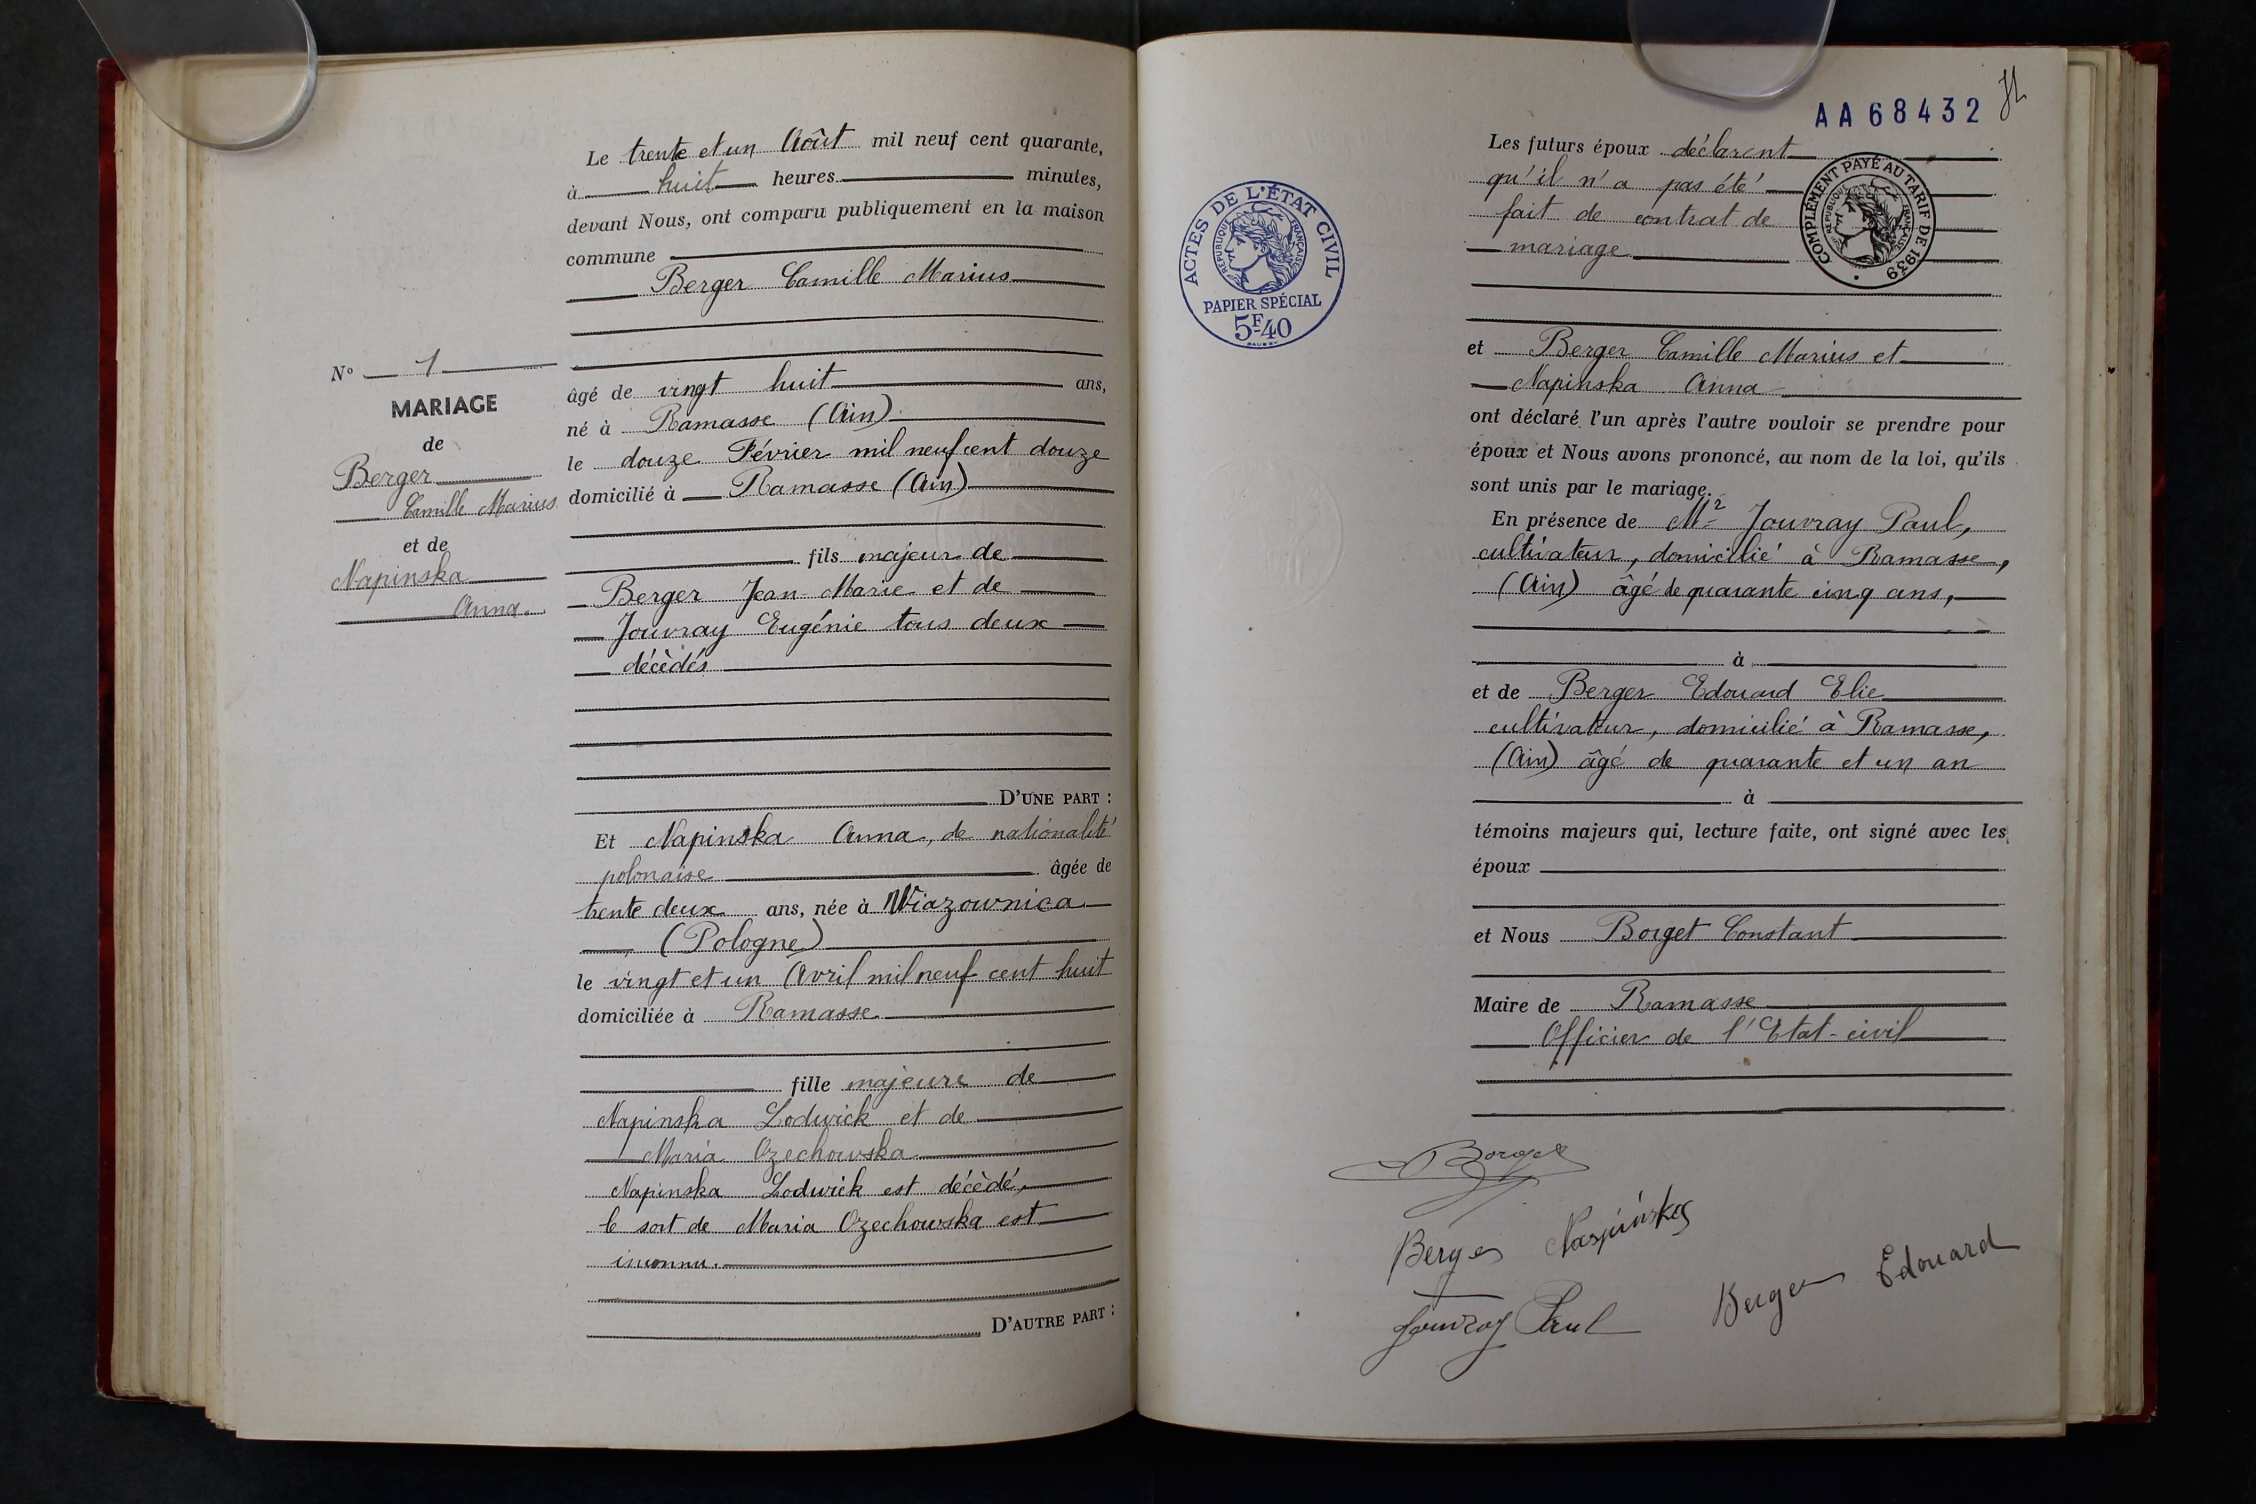 N° 1
MARIAGE
de
Berger
Camille Marius
et de
Napinska
Anna.
Le trente et un Août mil neuf cent quarante,
à huit heures minutes,
devant Nous, ont comparu publiquement en la maison
commune
Berger Camille Marius
âgé de vingt huit ans,
né à Ramasse (Ain)
le douze Février mil neuf cent douze
domicilié à Ramasse (Ain)
fils majeur de
Berger Jean-Marie et de
Jouvray Eugénie tous deux
décèdés
D'UNE PART :
Et Napinska Anna, de nationalité
polonaise âgée de
trente deux ans, née à Wiazownica
(Pologne)
le vingt et un Avril mil neuf cent huit
domiciliée à Ramasse
fille majeure de
Napinska Lodwick et de
Maria Ozechowska
Napinska Lodwick est décèdé,
le sort de Maria Ozechowska est
inconnu.
D'AUTRE PART :
AA 68432
ACTES DE L'ÉTAT CIVIL
RÉPUBLIQUE FRANÇAISE
PAPIER SPÉCIAL
5F40
COMPLÉMENT PAYÉ AU TARIF DE 1939
RÉPUBLIQUE FRANÇAISE
Les futurs époux déclarent
qu'il n'a pas été
fait de contrat de
mariage
et Berger Camille Marius et
Napinska Anna
ont déclaré l'un après l'autre vouloir se prendre pour
époux et Nous avons prononcé, au nom de la loi, qu'ils
sont unis par le mariage.
En présence de Mr Jouvray Paul,
cultivateur, domicilié à Ramasse,
(Ain) âgé de quarante cinq ans,
à
et de Berger Edouard Elie
cultivateur, domicilié à Ramasse,
(Ain) âgé de quarante et un an
à
témoins majeurs qui, lecture faite, ont signé avec les
époux
et Nous Borget Constant
Maire de Ramasse
Officier de l'Etat-civil
Borget
Berger Napińska
Jouvray Paul Berger Edouard